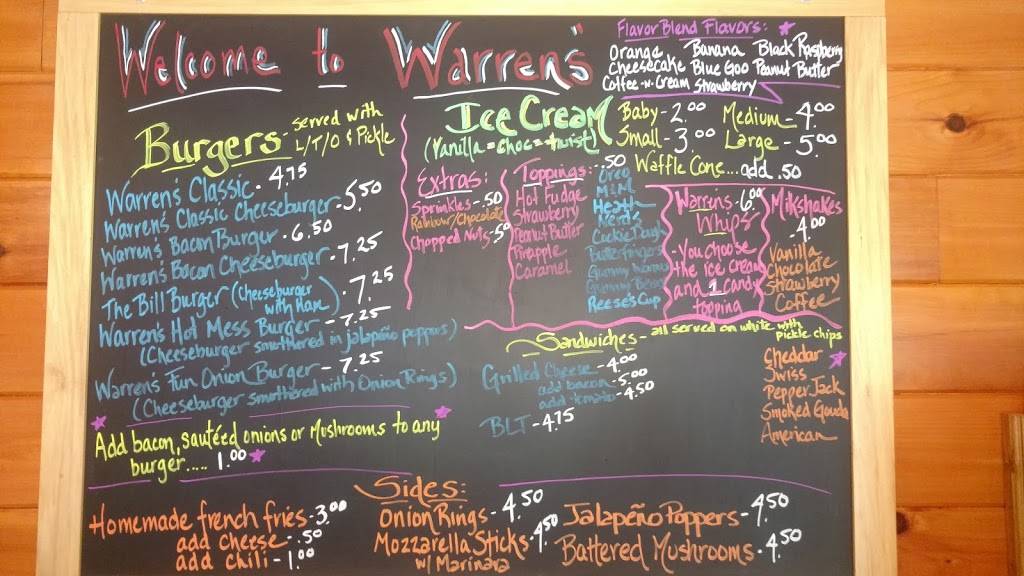 Welcome to Warren's
Flavor Blend Flavors:
Orange Banana Black Raspberry
Cheesecake Blue Goo Peanut Butter
Coffee-n-Cream Strawberry
Burgers - served with
L/T/O & Pickle
Warren's Classic - 4.75
Warren's Classic Cheeseburger - 5.50
Warren's Bacon Burger - 6.50
Warren's Bacon Cheeseburger - 7.25
The Bill Burger (Cheeseburger
with Ham) - 7.25
Warren's Hot Mess Burger - 7.25
(Cheeseburger smothered in jalapeño poppers)
Warren's Fun Onion Burger - 7.25
(Cheeseburger smothered with Onion Rings)
Add bacon, sautéed onions or Mushrooms to any
burger.... 1.00
Ice Cream
(Vanilla = choc = twist)
Baby - 2.00 Medium - 4.00
Small - 3.00 Large - 5.00
Waffle Cone... add .50
Extras:
Sprinkles - .50
Rainbow/Chocolate
Chopped Nuts - .50
Toppings: .50
Hot Fudge
Strawberry
Peanut Butter
Pineapple
Caramel
Oreo
M&M
Heath
Nerds
Cookie Dough
Butterfinger
Gummy Worms
Gummy Bears
Reese's Cup
Warrens 6.00
Whips
- You choose
the ice cream
and 1 candy
topping
Milkshakes
- 4.00
Vanilla
Chocolate
Strawberry
Coffee
Sandwiches - all served on white with
pickle chips
Grilled Cheese - 4.00
add bacon - 5.00
add tomato - 4.50
BLT - 4.75
Cheddar
Swiss
Pepper Jack
Smoked Gouda
American
Sides:
Homemade french fries - 3.00
add cheese - .50
add chili - 1.00
Onion Rings - 4.50
Mozzarella Sticks - 4.50
w/ Marinara
Jalapeño Poppers - 4.50
Battered Mushrooms - 4.50